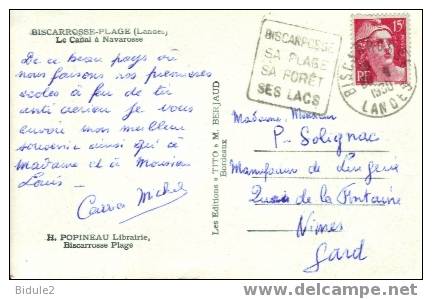 BISCARROSSE-PLAGE (Landes)
Le Canal à Navarosse
De ce beau pays où
nous faisons nos premières
écoles à feu de tir
anti aérien je vous
envoie mon meilleur
souvenir ainsi qu'à
madame et à Monsieur
Louis –
Michel
H. POPINEAU Librairie,
Biscarrosse Plage
Les Editions "TITO" M. BERJAUD
Bordeaux
BISCARROSSE
SA PLAGE
SA FORÊT
SES LACS
15F
RF
BISCA
LANDES
Madame, Monsieur
P. Solignac
Manufacture de Lingerie
Quai de la Fontaine
Nimes
Gard
Bidule2
delcampe.net